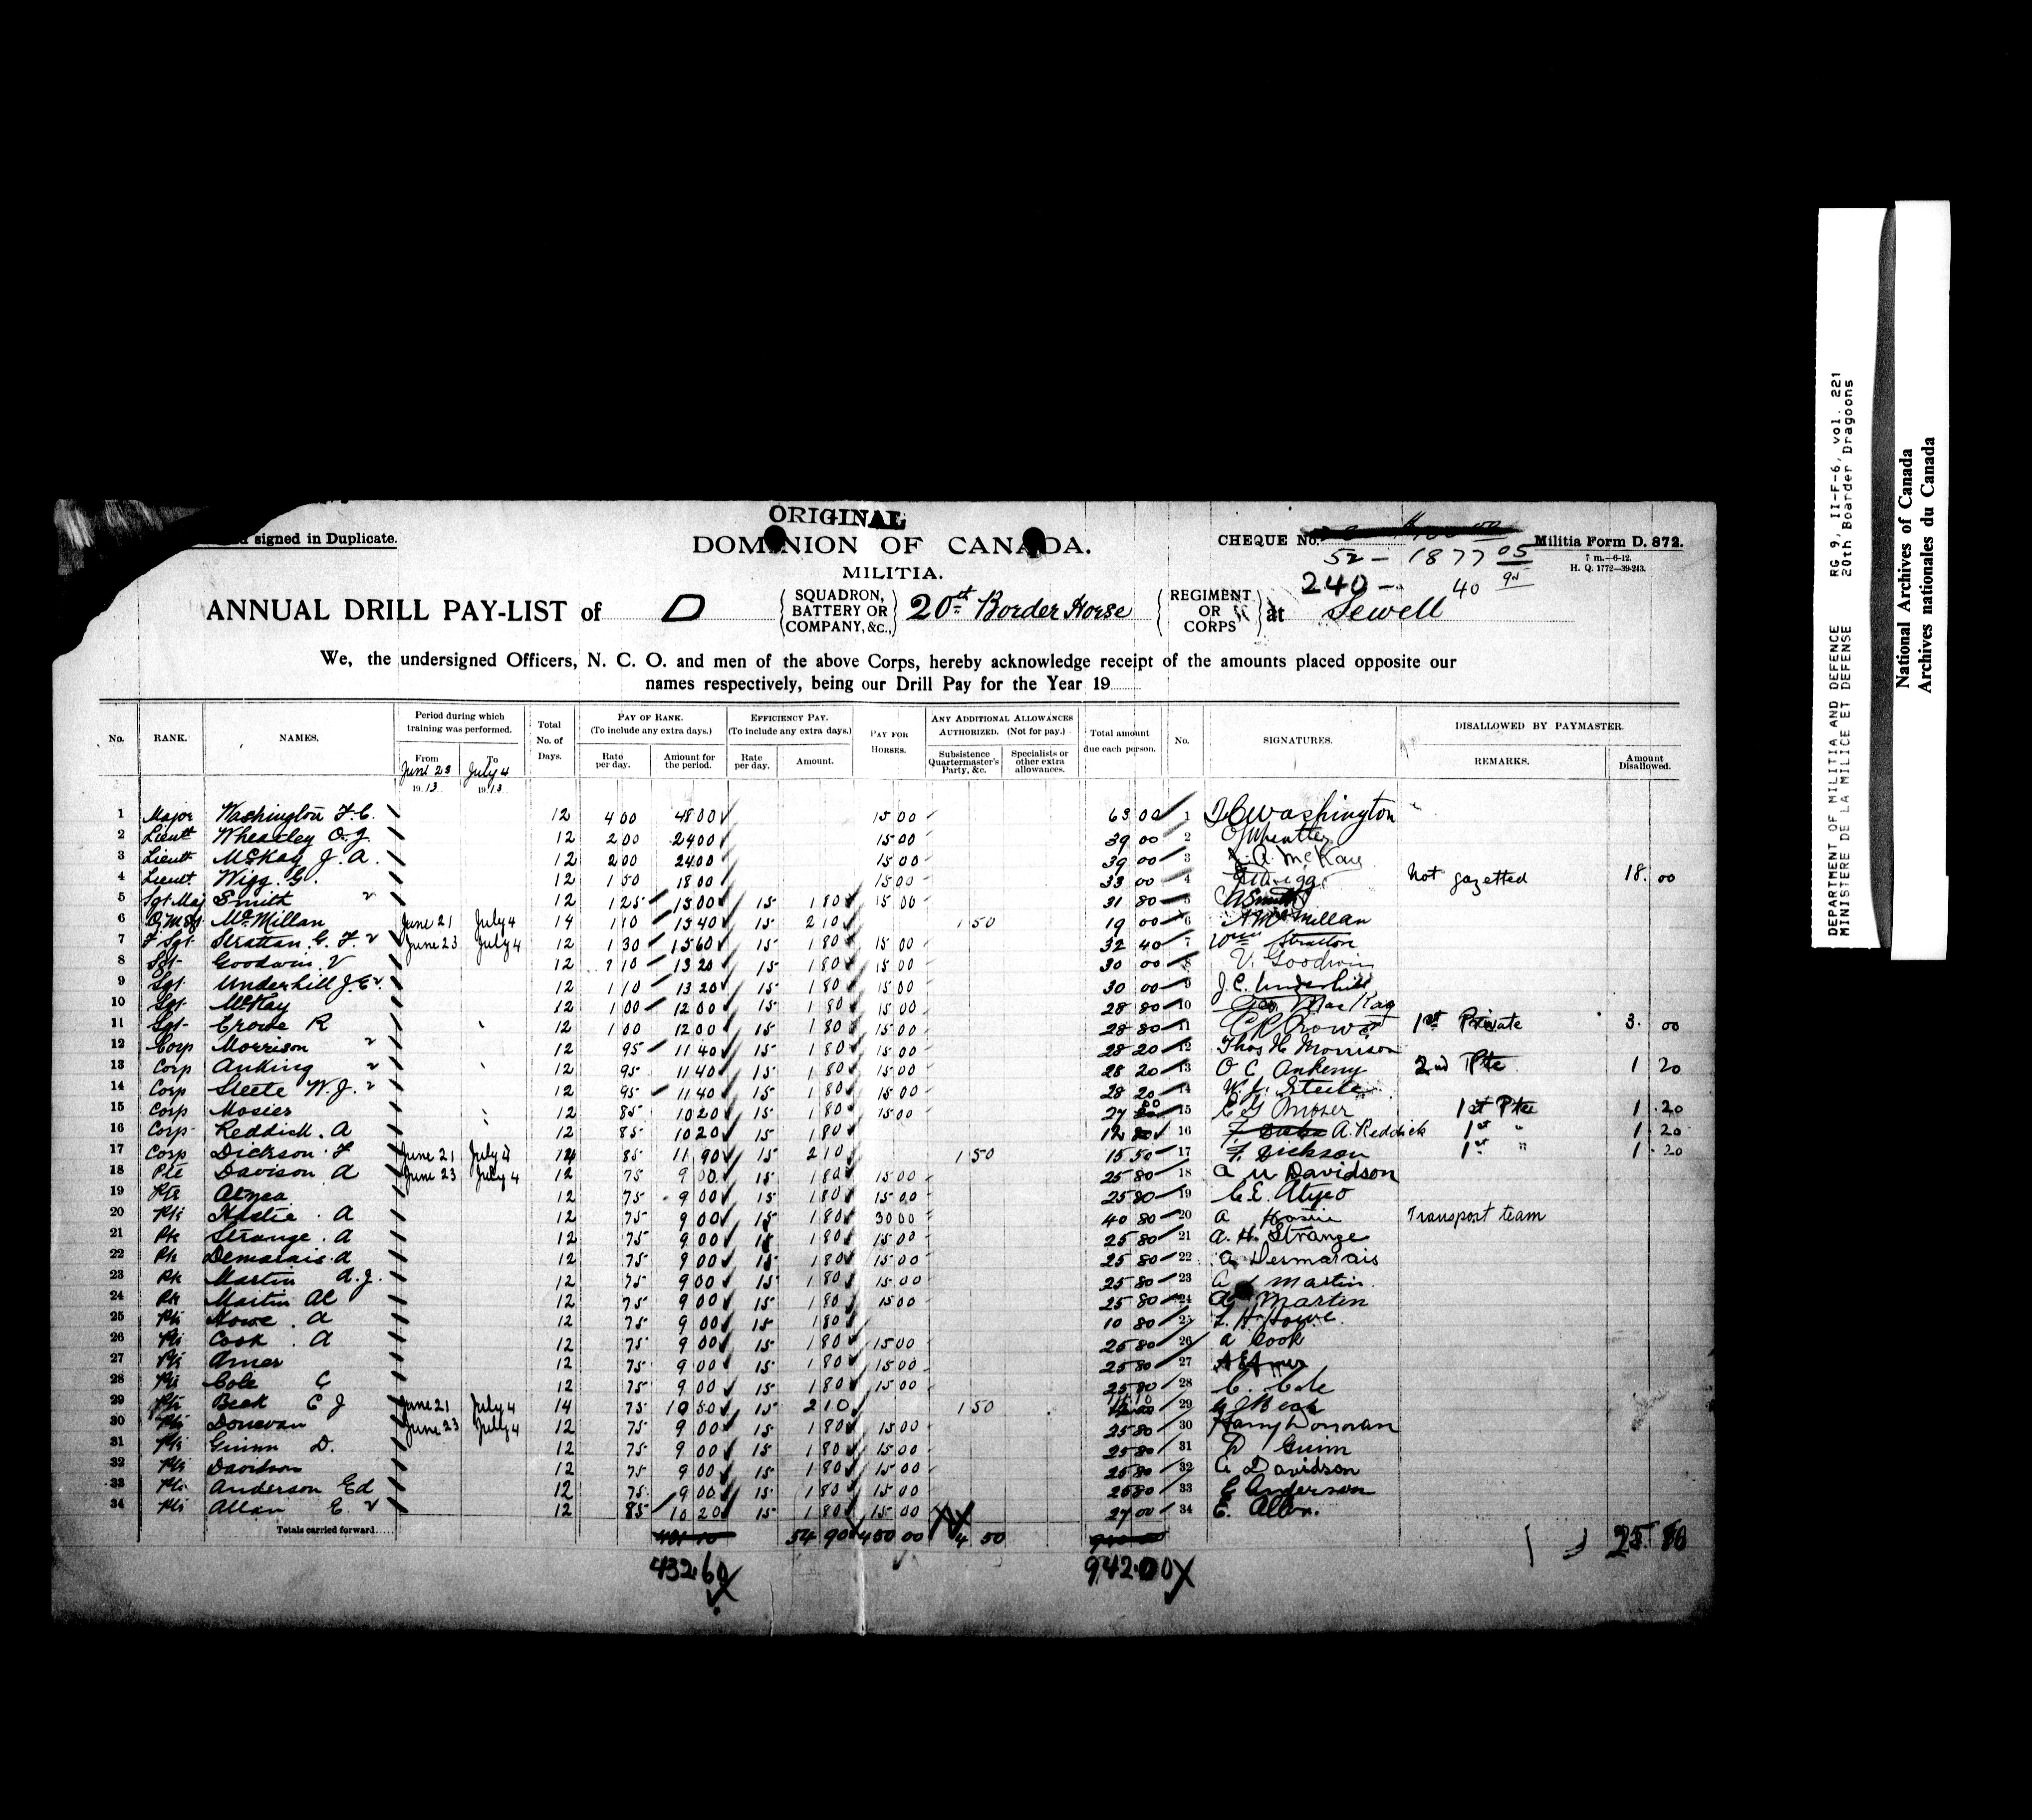 ORIGINAL
signed in Duplicate.
DOMINION OF CANADA.
CHEQUE No.
Militia Form D. 872.
52 - 1877 05
7 m.—6-12.
H. Q. 1772—39-243.
MILITIA.
240 - 40
ANNUAL DRILL PAY-LIST of D {SQUADRON, BATTERY OR COMPANY, &C.,} 20th Border Horse {REGIMENT OR CORPS} at Sewell
We, the undersigned Officers, N. C. O. and men of the above Corps, hereby acknowledge receipt of the amounts placed opposite our
names respectively, being our Drill Pay for the Year 19
No. RANK. NAMES. Period during which training was performed. From June 23 1913 To July 4 1913 Total No. of Days. PAY OF RANK. (To include any extra days.) Rate per day. Amount for the period. EFFICIENCY PAY. (To include any extra days.) Rate per day. Amount. PAY FOR HORSES. ANY ADDITIONAL ALLOWANCES AUTHORIZED. (Not for pay.) Subsistence Quartermaster's Party, &c. Specialists or other extra allowances. Total amount due each person. No. SIGNATURES. DISALLOWED BY PAYMASTER. REMARKS. Amount Disallowed.
1 Major Washington F.C. 12 4 00 48 00 15 00 63 00 1 F C Washington
2 Lieut Wheatley O.J. 12 2 00 24 00 15 00 39 00 2 O J Wheatley
3 Lieut McKay J.A. 12 2 00 24 00 15 00 39 00 3 J. A. McKay
4 Lieut Wigg. G. 12 1 50 18 00 15 00 33 00 4 Not gazetted 18. 00
5 Sgt Maj Smith 12 1 25 15 00 15 1 80 15 00 31 80 5 Smith
6 Q M Sgt McMillan June 21 July 4 14 1 10 15 40 15 2 10 1 50 19 00 6 A McMillan
7 F Sgt Stratton G. F. June 23 July 4 12 1 30 15 60 15 1 80 15 00 32 40 7 Wm Stratton
8 Sgt Goodwin V 12 1 10 13 20 15 1 80 15 00 30 00 8 V. Goodwin
9 Sgt Underhill J.E. 12 1 10 13 20 15 1 80 15 00 30 00 9 J.E. Underhill
10 Sgt McKay 12 1 00 12 00 15 1 80 15 00 28 80 10 Geo MacKay
11 Sgt Crowe R 12 1 00 12 00 15 1 80 15 00 28 80 11 C R Crowe 1st Private 3. 00
12 Corp Morrison 12 95 11 40 15 1 80 15 00 28 20 12 Thos H Morrison
13 Corp Anking 12 95 11 40 15 1 80 15 00 28 20 13 O C Ankeny 2nd Pte 1 20
14 Corp Steele W.J. 12 95 11 40 15 1 80 15 00 28 20 14 W. J. Steele
15 Corp Mosier 12 85 10 20 15 1 80 15 00 27 00 15 E G Moser 1st Pte 1 .20
16 Corp Reddick. A 12 85 10 20 15 1 80 12 16 A. Reddick 1st " 1. 20
17 Corp Dickson. F June 21 July 4 14 85 11 90 15 2 10 1 50 15 50 17 F. Dickson 1st " 1. 20
18 Pte Davison A June 23 July 4 12 75 9 00 15 1 80 15 00 25 80 18 A M Davidson
19 Pte 12 75 9 00 15 1 80 15 00 25 80 19 C.E. Atyeo
20 Pte Hastie . A 12 75 9 00 15 1 80 30 00 40 80 20 A Hastie Transport team
21 Pte Strange . A 12 75 9 00 15 1 80 15 00 25 80 21 A. H. Strange
22 Pte Demarais. A 12 75 9 00 15 1 80 15 00 25 80 22 A Desmarais
23 Pte Martin A.J. 12 75 9 00 15 1 80 15 00 25 80 23 A J Martin
24 Pte Martin Al 12 75 9 00 15 1 80 15 00 25 80 24 Martin
25 Pte Howe . A 12 75 9 00 15 1 80 10 80 25 L. H. Howe.
26 Pte Cook . A 12 75 9 00 15 1 80 15 00 25 80 26 A Cook
27 Pte Amer 12 75 9 00 15 1 80 15 00 25 80 27 A E Amer
28 Pte Cole C 12 75 9 00 15 1 80 15 00 25 80 28 C. Cole
29 Pte Beak E J June 21 July 4 14 75 10 50 15 2 10 1 50 29 E J Beak
30 Pte Donovan June 23 July 4 12 75 9 00 15 1 80 15 00 25 80 30 Harry Donovan
31 Pte Guinn D. 12 75 9 00 15 1 80 15 00 25 80 31 D Guinn
32 Pte Davidson 12 75 9 00 15 1 80 15 00 25 80 32 A Davidson
33 Pte Anderson Ed 12 75 9 00 15 1 80 15 00 25 80 33 E Anderson
34 Pte Allan E. 12 85 10 20 15 1 80 15 00 27 00 34 E. Allan.
Totals carried forward.... 54 90 450 00 4 50
432.60 942.00
DEPARTMENT OF MILITIA AND DEFENCE RG 9, II-F-6, vol. 221
MINISTERE DE LA MILICE ET DEFENSE 20th Boarder Dragoons
National Archives of Canada
Archives nationales du Canada